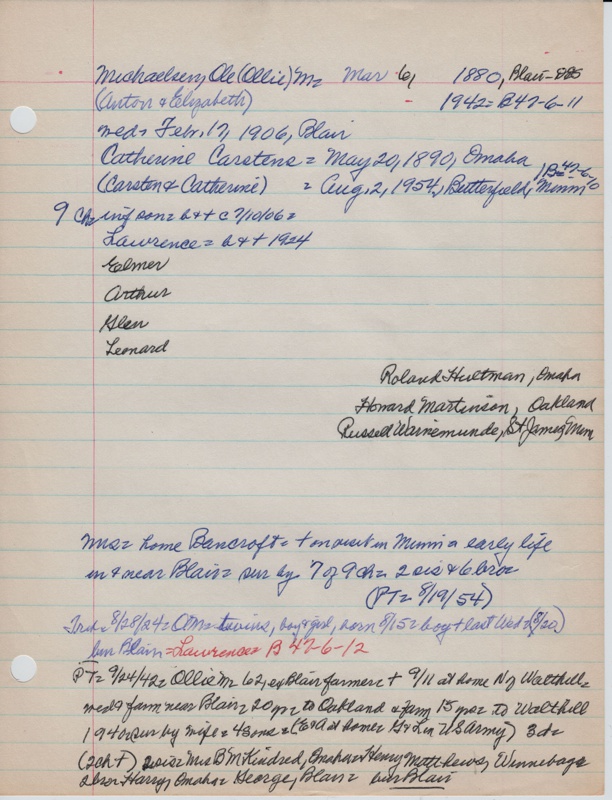 Michaelsen, Ole (Ollie) M= Mar 6, 1880, Blair-885
(Anton & Elizabeth) 1942= B47-6-11
wed= Feb. 17, 1906, Blair
Catherine Carstens = May 20, 1890, Omaha
(Carsten & Catherine) = Aug. 2, 1954, Butterfield, Minn
B=47-6-10
9 Ch= inf son= b & + c 7/10/06=
Lawrence = b & + 1924
Elmer
Arthur
Glen
Leonard
Roland Hultman, Omaha
Howard Martinson, Oakland
Russell Warnemunde, St James, Minn
Mrs= home Bancroft= + on visit in Minn= early life
in & near Blair= sur by 7 of 9 ch= 2 sis & 6 bro=
(PT= 8/19/54)
Trib= 8/28/24= OM= twins, boy & girl, born 8/15= boy + last Wed= (8/20)
bur Blair =Lawrence= B 47-6-12
PT= 9/24/42= Ollie M= 62, ex Blair farmer= + 9/11 at home N of Walthill=
wed & farm near Blair= 20 yr= to Oakland & farm 15 yr= to Walthill
1940= sur by wife= 4 sons= (E & A at home= G & L in US Army) 3 d=
(2 ch +) 2 sis= Mrs B M Kindred, Omaha= Henry Matthews, Winnebago
2 bro= Harry, Omaha= George, Blair= bur Blair